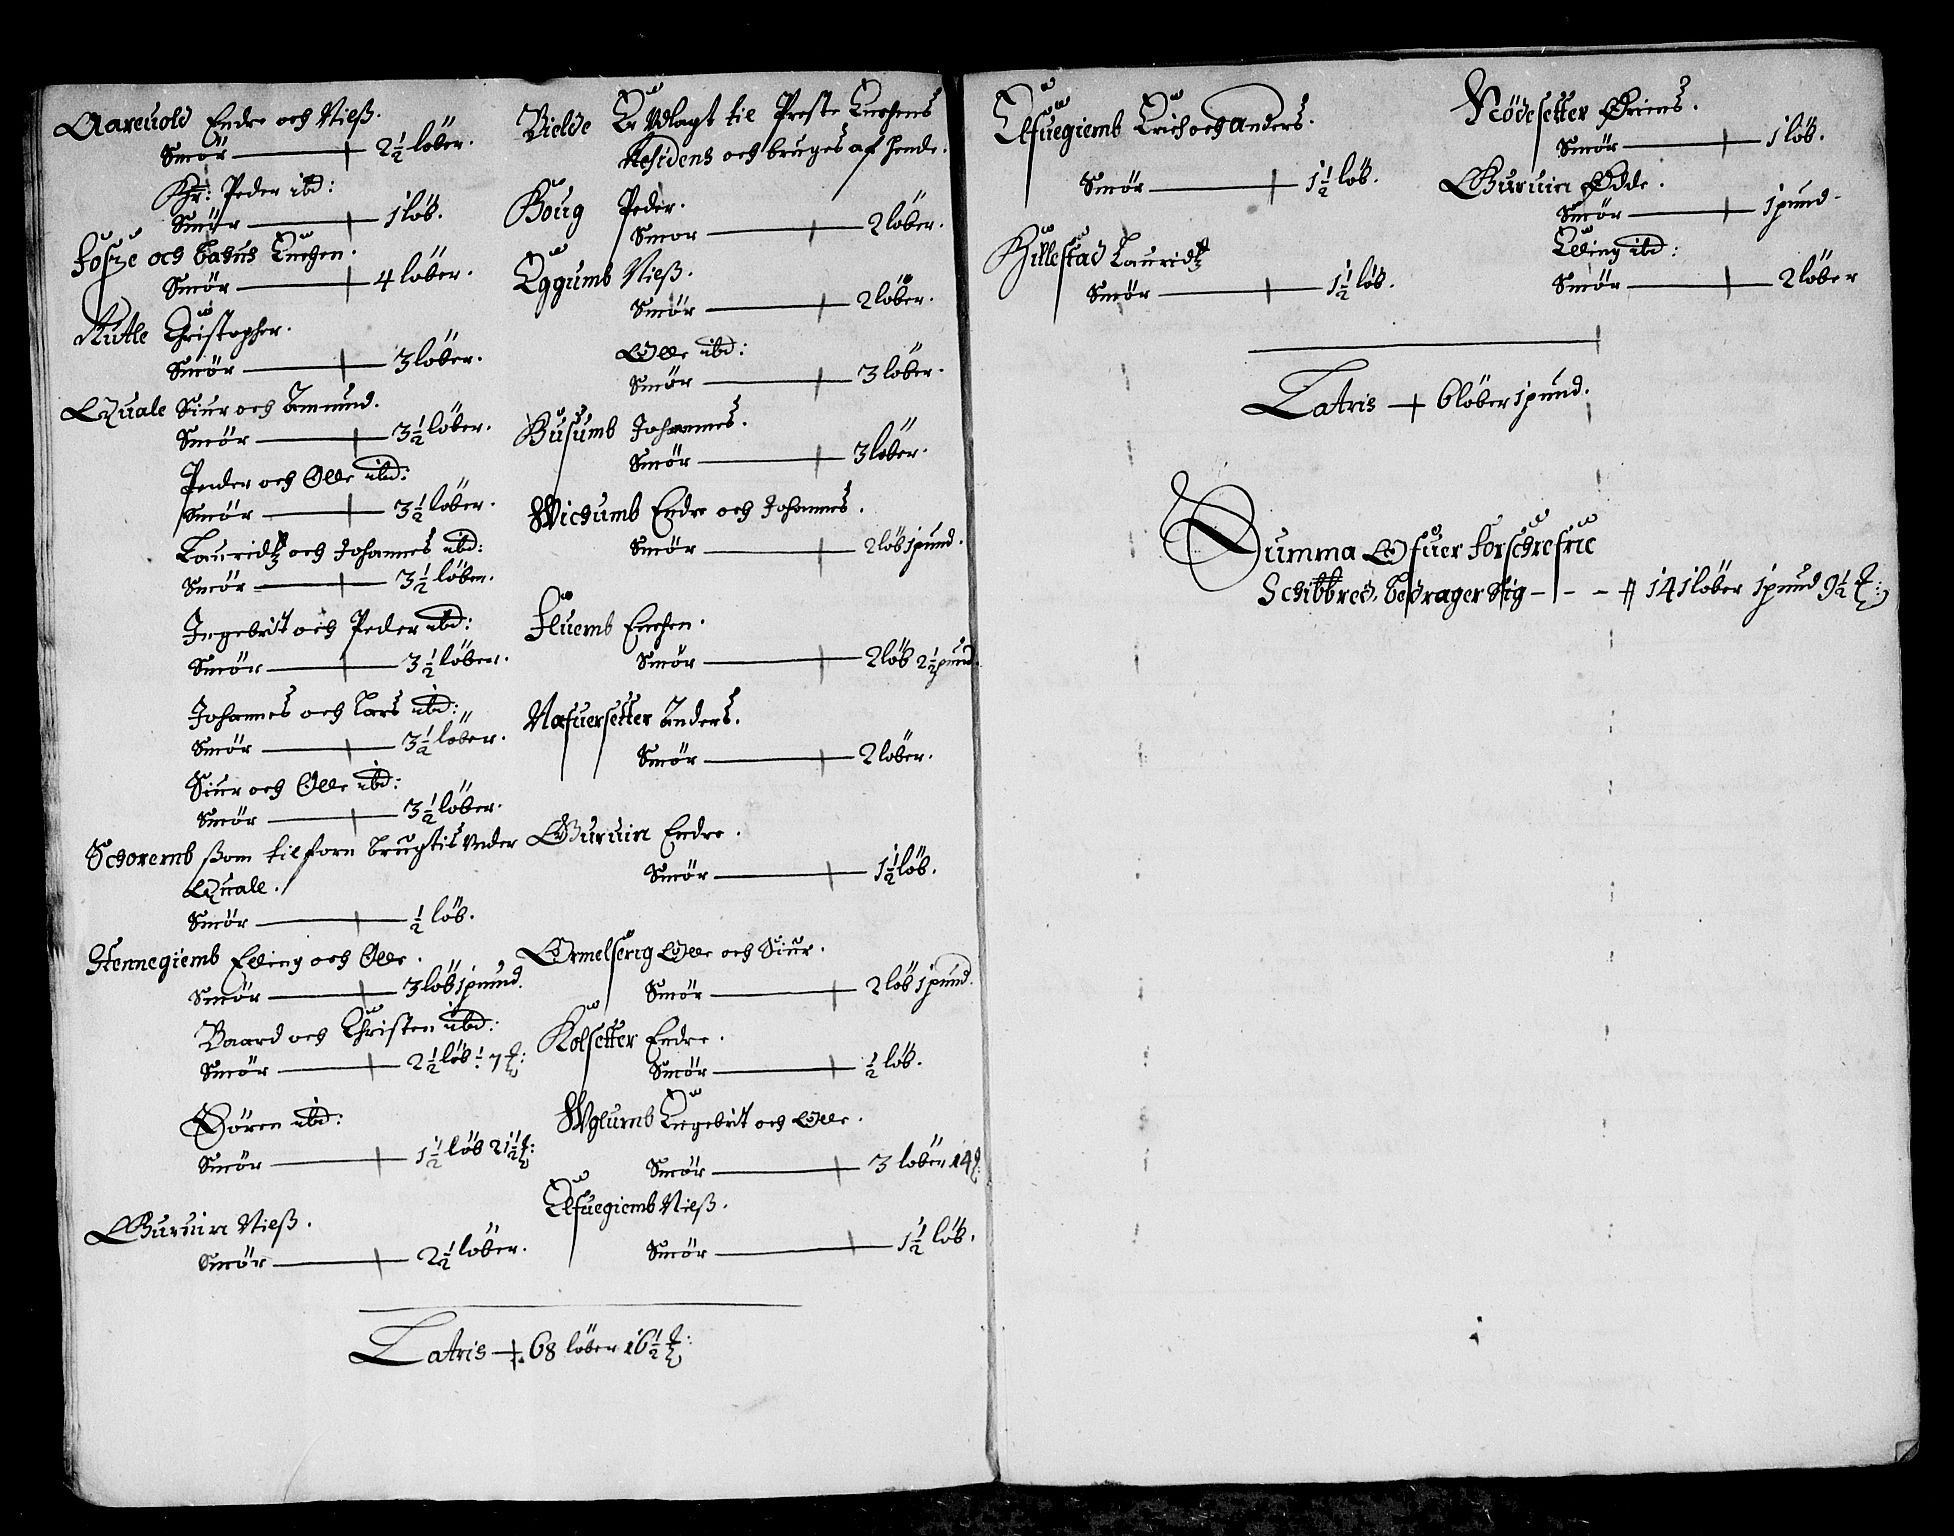 Aareuold Endre och Nielß.
Smör 2½ löber.
Hr: Peder ibd:
Smör 1 löb.
Fosze och bahus Enchen.
Smör 4 löber.
Rutle Christopher.
Smör 3 löber.
Quale Siur och Amund.
Smör 3½ löber.
Peder och Olle ibd:
Smör 3½ löber.
Lauridtz och Johannes ibd:
Smör 3½ löber.
Ingebrit och Peder ibd:
Smör 3½ löber.
Johannes och Lars ibd:
Smör 3½ löber.
Siur och Olle ibd:
Smör 3½ löber.
Schoremb ßom tilforn brugtis Under
Quale.
Smör ½ löb.
Hennegiemb Elling och Olle.
Smör 3 löb 1 pund.
Baard och Christen ibd:
Smör 2½ löb 7
Sören ibd:
Smör 1½ löb 21½
Guruin Nielß.
Smör 2½ löber.
Bielde Er Udlagt til Preste Enchens
Residens och bruges af hende.
Houg Peder.
Smör 2 löber.
Eggumb Nielß.
Smör 2 löber.
Olle ibd:
Smör 3 löber.
Husumb Johannes.
Smör 3 löber.
Wichumb Endre och Johannes.
Smör 2 löb 1 pund.
Fluemb Enchen.
Smör 2 löb 2½ pund.
Nafuersetter Anders.
Smör 2 löber.
Guruin Endre.
Smör 1½ löb.
Ormelserig Olle och Siur.
Smör 2 löb 1 pund.
Kolsetter Endre.
Smör ½ löb.
Wglumb Engebrit och Olle.
Smör 3 löber 14
Elfuegiemb Nielß.
Smör 1½ löb.
Latris 68 löber 16½
Elfuegiemb Erich och Anders.
Smör 1½ löb.
Hillestad Lauridtz
Smör 1½ löb.
Nödesetter Briens.
Smör 1 löb.
Guruin Odde.
Smör 1 pund.
Elling ibd:
Smör 2 löber
Latris 6 löber 1 pund.
Summa Ofuer Forschrefne
Schibbred. bedrager Sig 141 löber 1 pund 9½